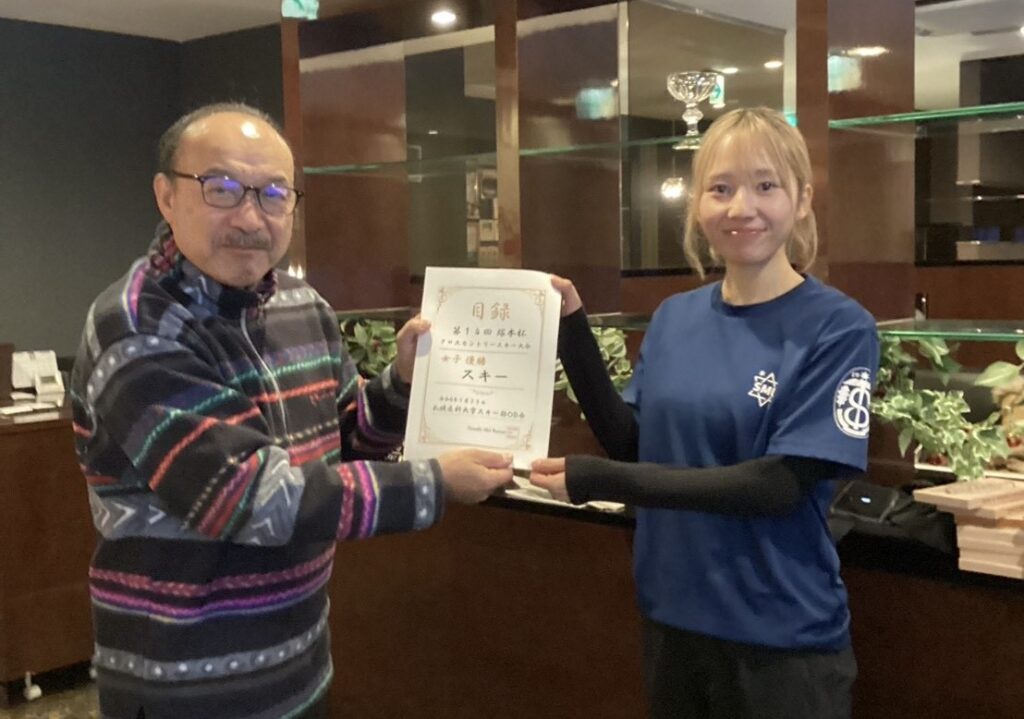 目録
第16回 塚本杯
クロスカントリースキー大会
女子 優勝
スキー
札幌医科大学スキー部OB会
SMU